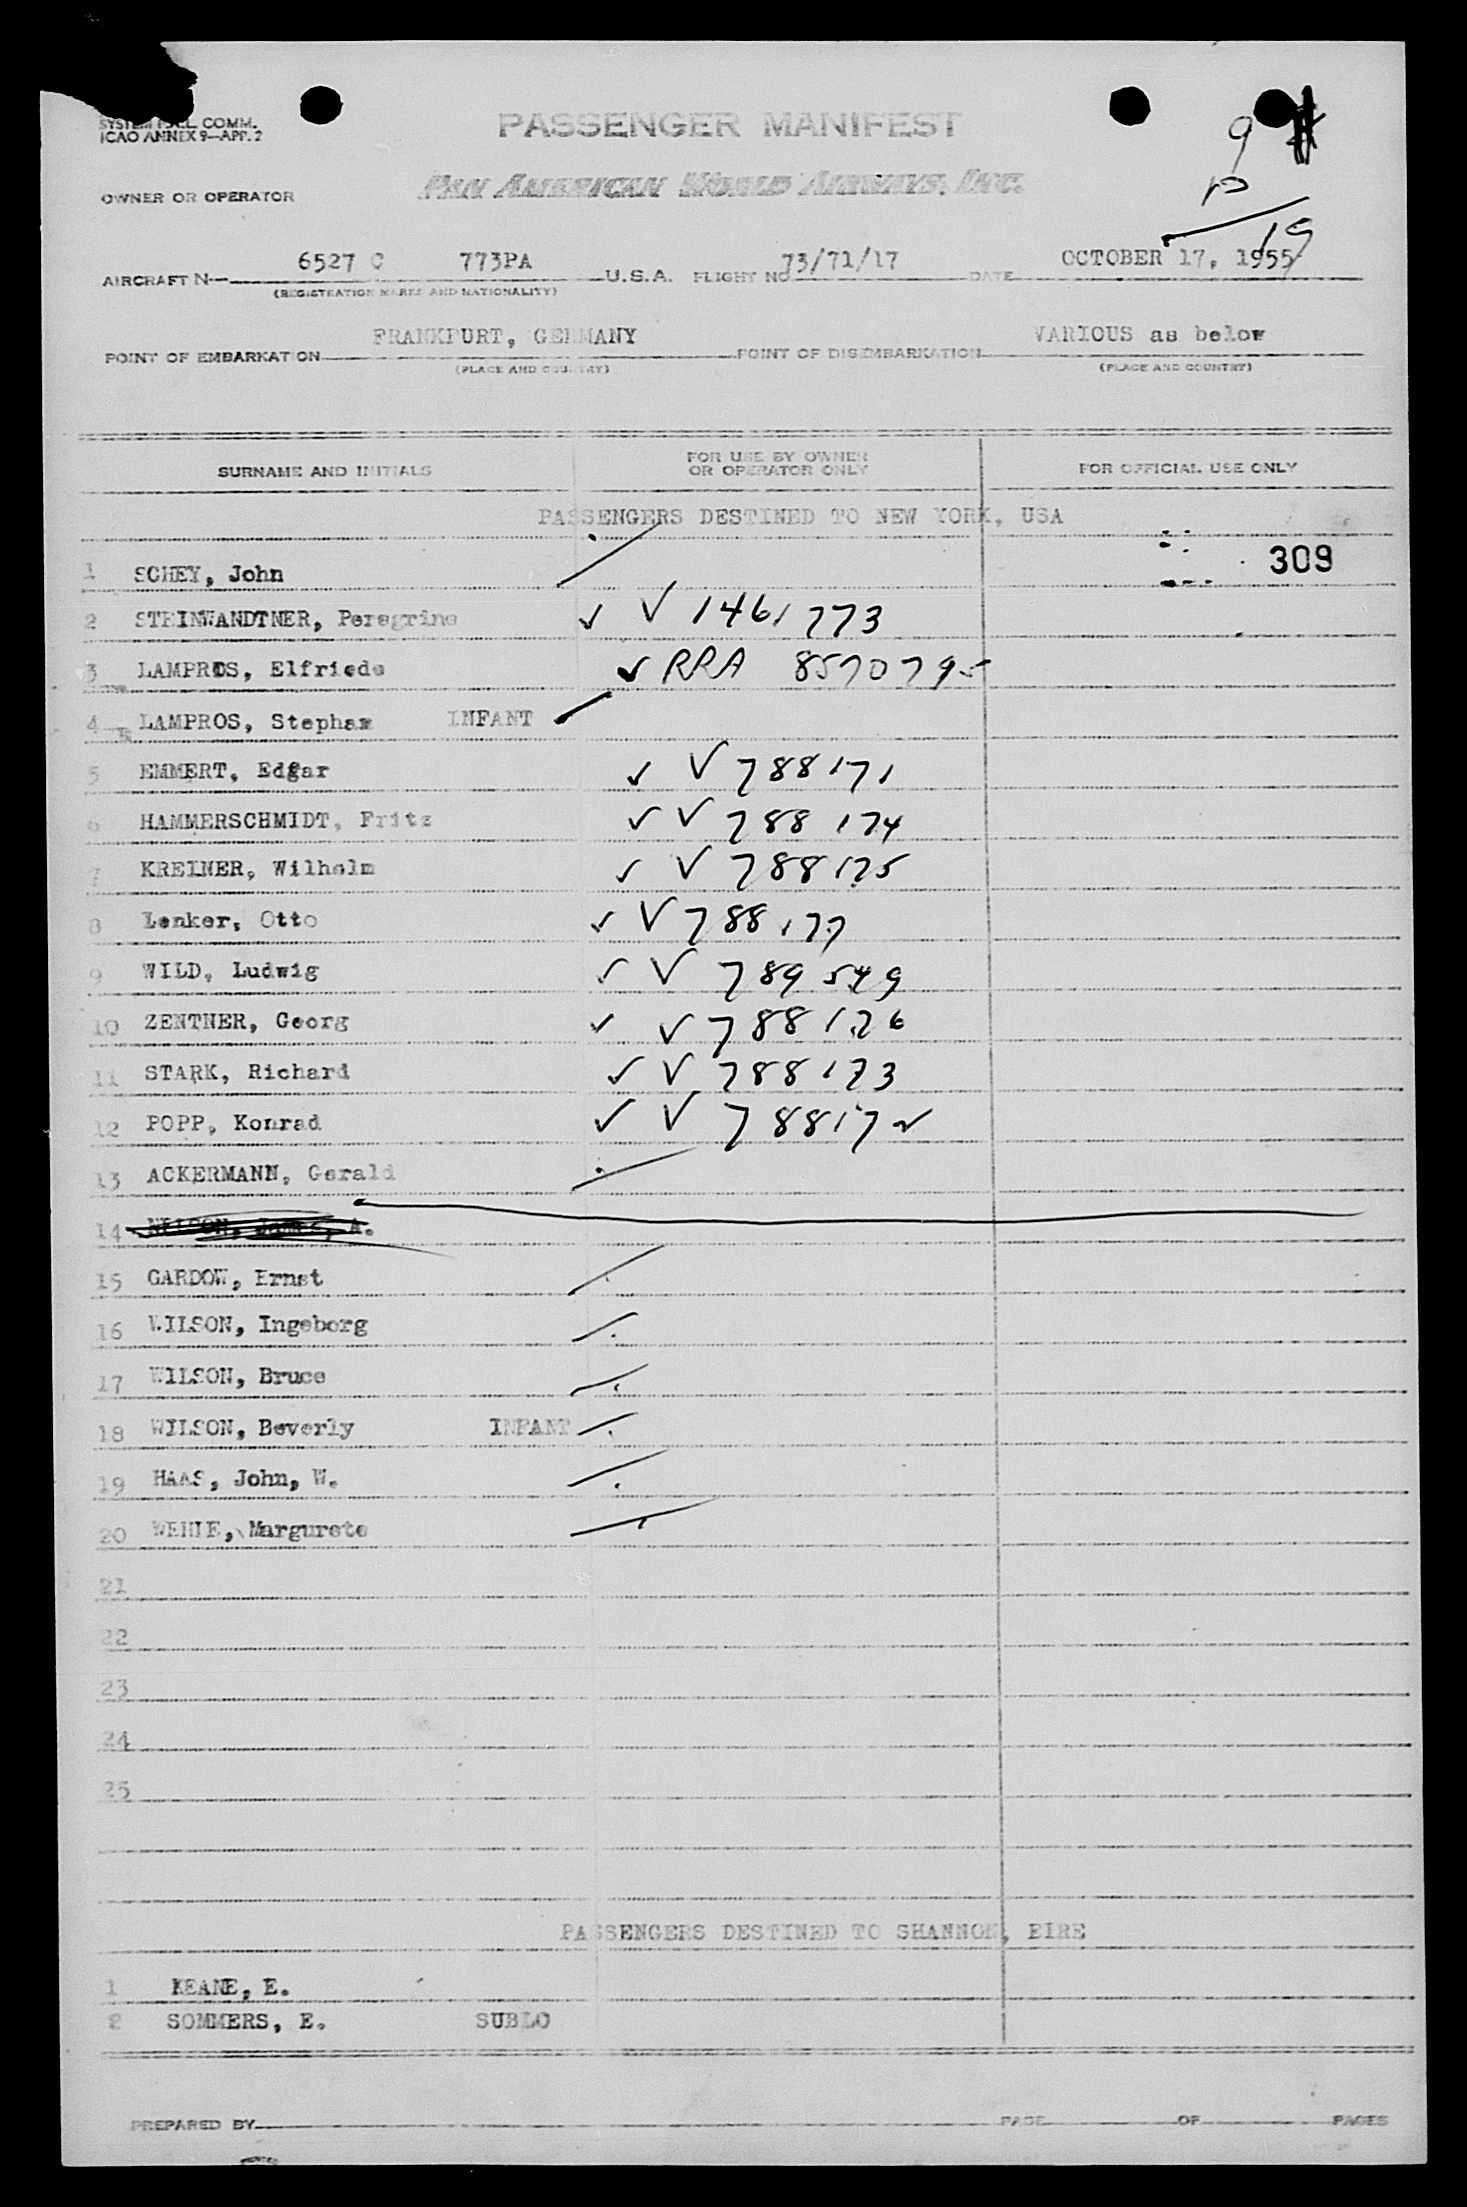 SYSTEM COMM.
ICAO ANNEX 9—APP. 2
PASSENGER MANIFEST
9
10
19
OWNER OR OPERATOR PAN AMERICAN WORLD AIRWAYS, INC.
AIRCRAFT N— 6527 C 773PA U.S.A. FLIGHT NO 73/71/17 DATE OCTOBER 17, 1955
(REGISTRATION MARKS AND NATIONALITY)
POINT OF EMBARKATION FRANKFURT, GERMANY POINT OF DISEMBARKATION VARIOUS as below
(PLACE AND COUNTRY) (PLACE AND COUNTRY)
SURNAME AND INITIALS FOR USE BY OWNER OR OPERATOR ONLY FOR OFFICIAL USE ONLY
PASSENGERS DESTINED TO NEW YORK, USA
1 SCHEY, John 309
2 STEINWANDTNER, Peregrine ✓ V 1461773
3 LAMPROS, Elfriede ✓ RRA 8570795
4 LAMPROS, Stephan INFANT
5 EMMERT, Edgar ✓ V 788171
6 HAMMERSCHMIDT, Fritz ✓ V 788174
7 KREINER, Wilhelm ✓ V 788175
8 Lenker, Otto ✓ V 788177
9 WILD, Ludwig ✓ V 789549
10 ZENTNER, Georg ✓ V 788176
11 STARK, Richard ✓ V 788173
12 POPP, Konrad ✓ V 788172
13 ACKERMANN, Gerald
14 A.
15 GARDOW, Ernst
16 WILSON, Ingeborg
17 WILSON, Bruce
18 WILSON, Beverly INFANT
19 HAAS, John, W.
20 WEHLE, Margurete
21
22
23
24
25
PASSENGERS DESTINED TO SHANNON, EIRE
1 KEANE, E.
2 SOMMERS, E. SUBLO
PREPARED BY PAGE OF PAGES